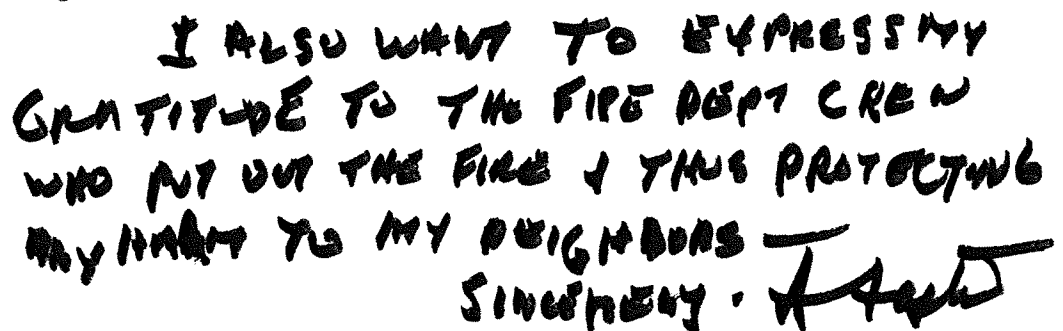 I ALSO WANT TO EXPRESS MY
GRATITUDE TO THE FIRE DEPT CREW
WHO PUT OUT THE FIRE & THUS PROTECTING
ANY HARM TO MY NEIGHBORS —
SINCERELY.